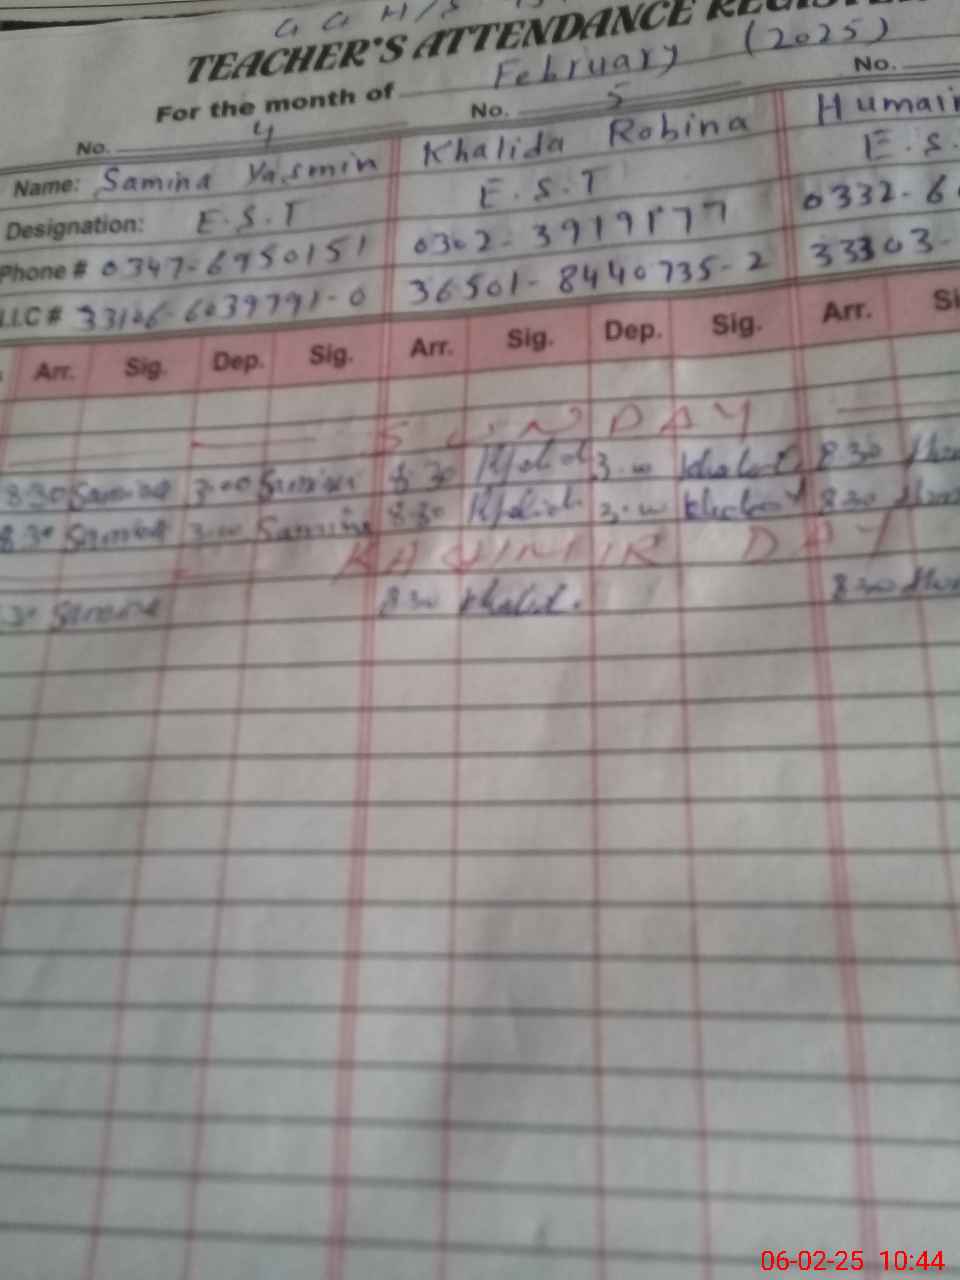 G G H/S
TEACHER'S ATTENDANCE REGISTER
For the month of February (2025)
No. 4 No. 5 No.
Name: Samina Yasmin Khalida Robina Humair
Designation: E.S.T E.S.T E.S.
Phone # 0347-6950151 0302-3919177 0332-6
LLC # 33106-6039791-0 36501-8440735-2 33303-
Arr. Sig. Dep. Sig. Arr. Sig. Dep. Sig. Arr. Si
SUNDAY
8:30 Samina 3:00 Samina 8:30 Khalid 3:00 Khalid 8:30
8:30 Samina 3:00 Samina 8:30 Khalid 3:00 8:30
KASHMIR DAY
30 Samina 8:30 Khalid. 8:30
06-02-25 10:44